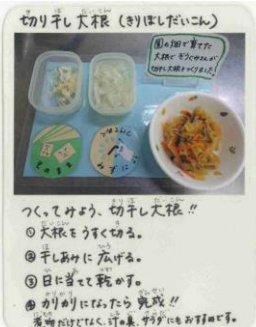 切り干し大根(きりぼしだいこん)
園の畑で育てた
大根でぞうぐみさんが
切干し大根をつくりました!
そのまま
つくってみよう、切干し大根!!
① 大根をうすく切る。
② 干しあみに広げる。
③ 日に当てて乾かす。
④ カリカリになったら完成!!
煮物だけでなく、汁の具、サラダにもおすすめです。